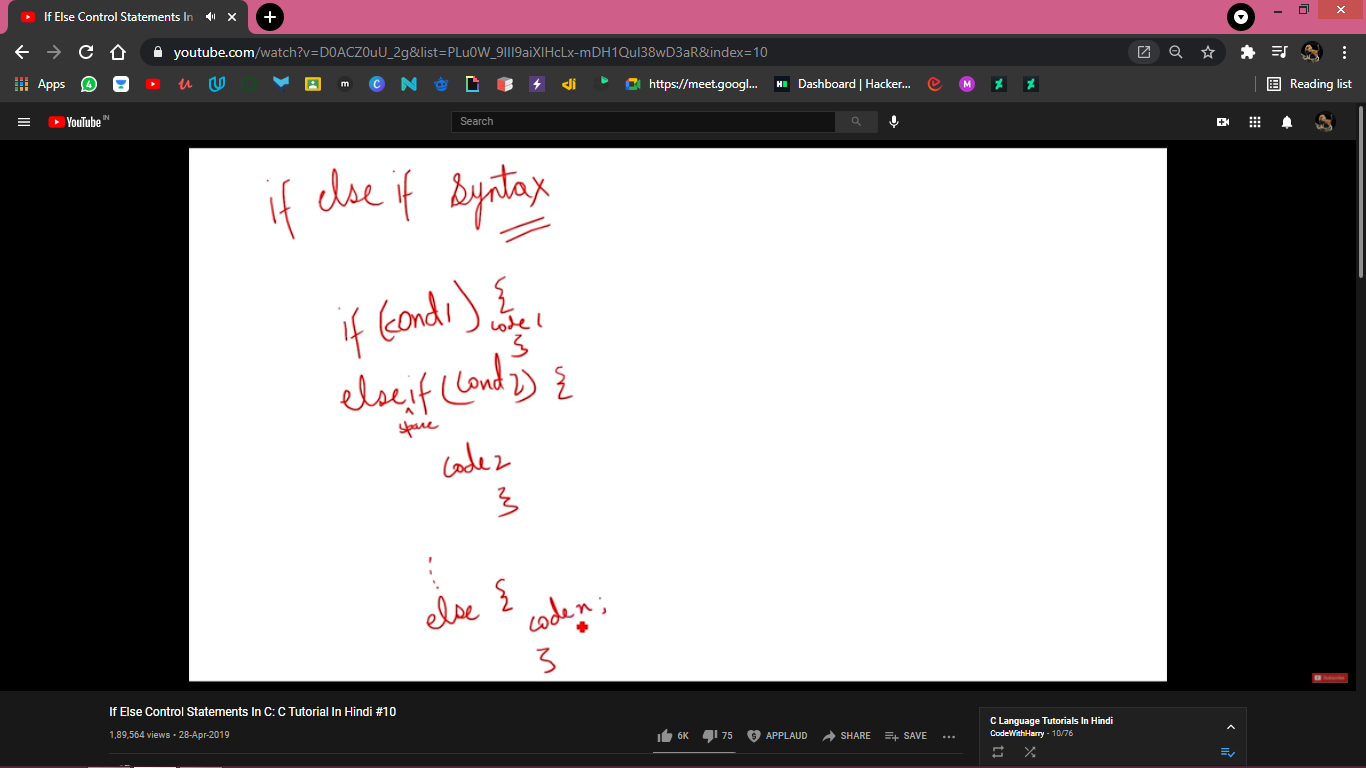 If Else Control Statements In
youtube.com/watch?v=D0ACZ0uU_2g&list=PLu0W_9lII9aiXlHcLx-mDH1Qul38wD3aR&index=10
Apps
https://meet.googl...
Dashboard | Hacker...
Reading list
YouTube IN
Search
if else if Syntax
if (cond1) {
code 1
}
else if (cond 2) {
^
space
code 2
}
else { code n ;
}
Subscribe
If Else Control Statements In C: C Tutorial In Hindi #10
1,89,564 views • 28-Apr-2019
6K
75
APPLAUD
SHARE
SAVE
C Language Tutorials In Hindi
CodeWithHarry - 10/76